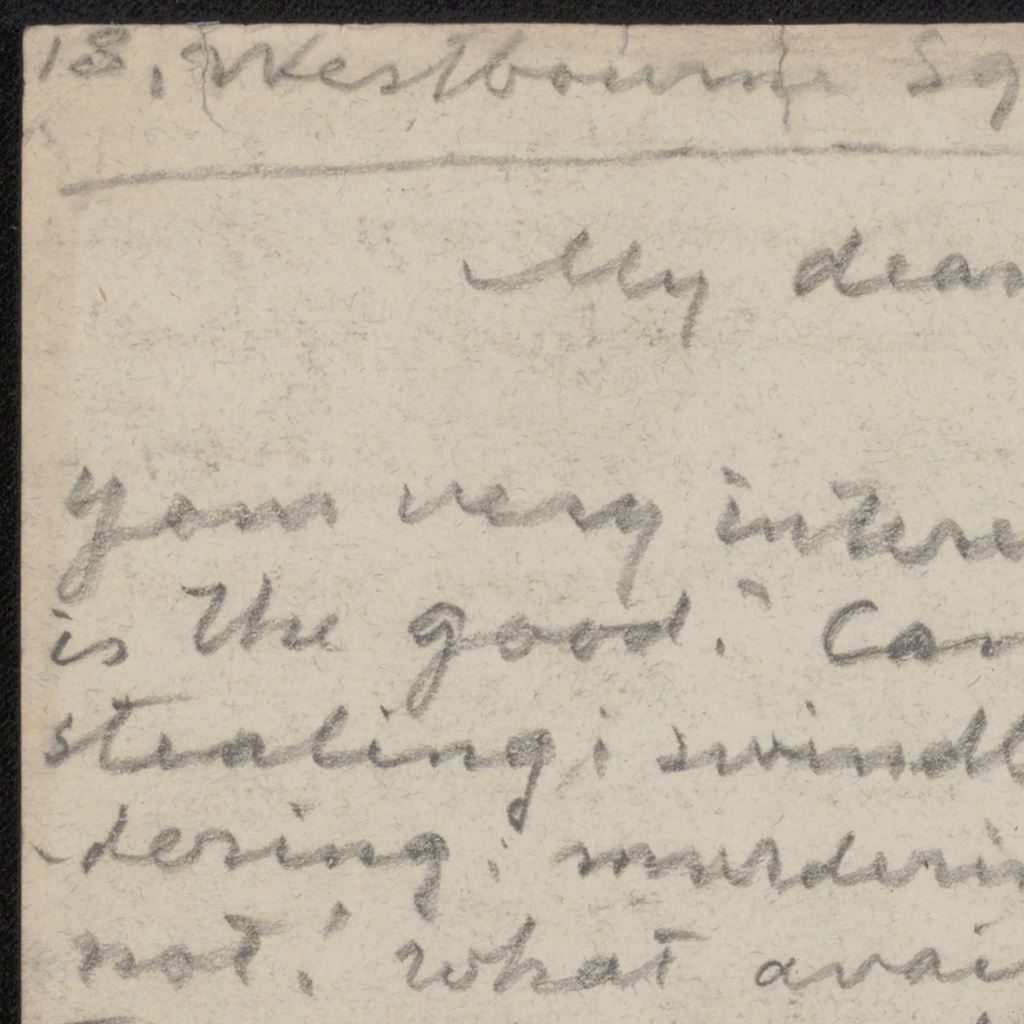 18, Westbourne Sq
My dear
your very intere
is the good." Can
stealing; swindl
-dering; murderin
not! what avai